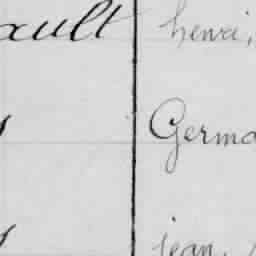 ault henri,
Germa
jean,